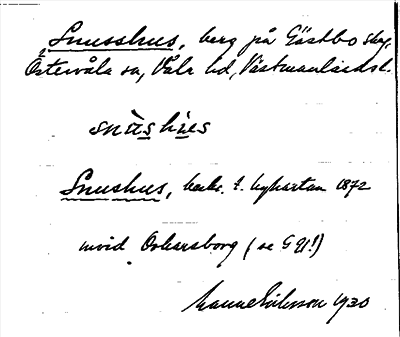 Snusshus, berg på Gästbo skog,
Östervåla sn, Våla hd, Västmanlands l.
snùshùs
Snushus, backe t. hykartan 1872
invid Oskarsborg (se GQ!)
Manne Eriksson 1930